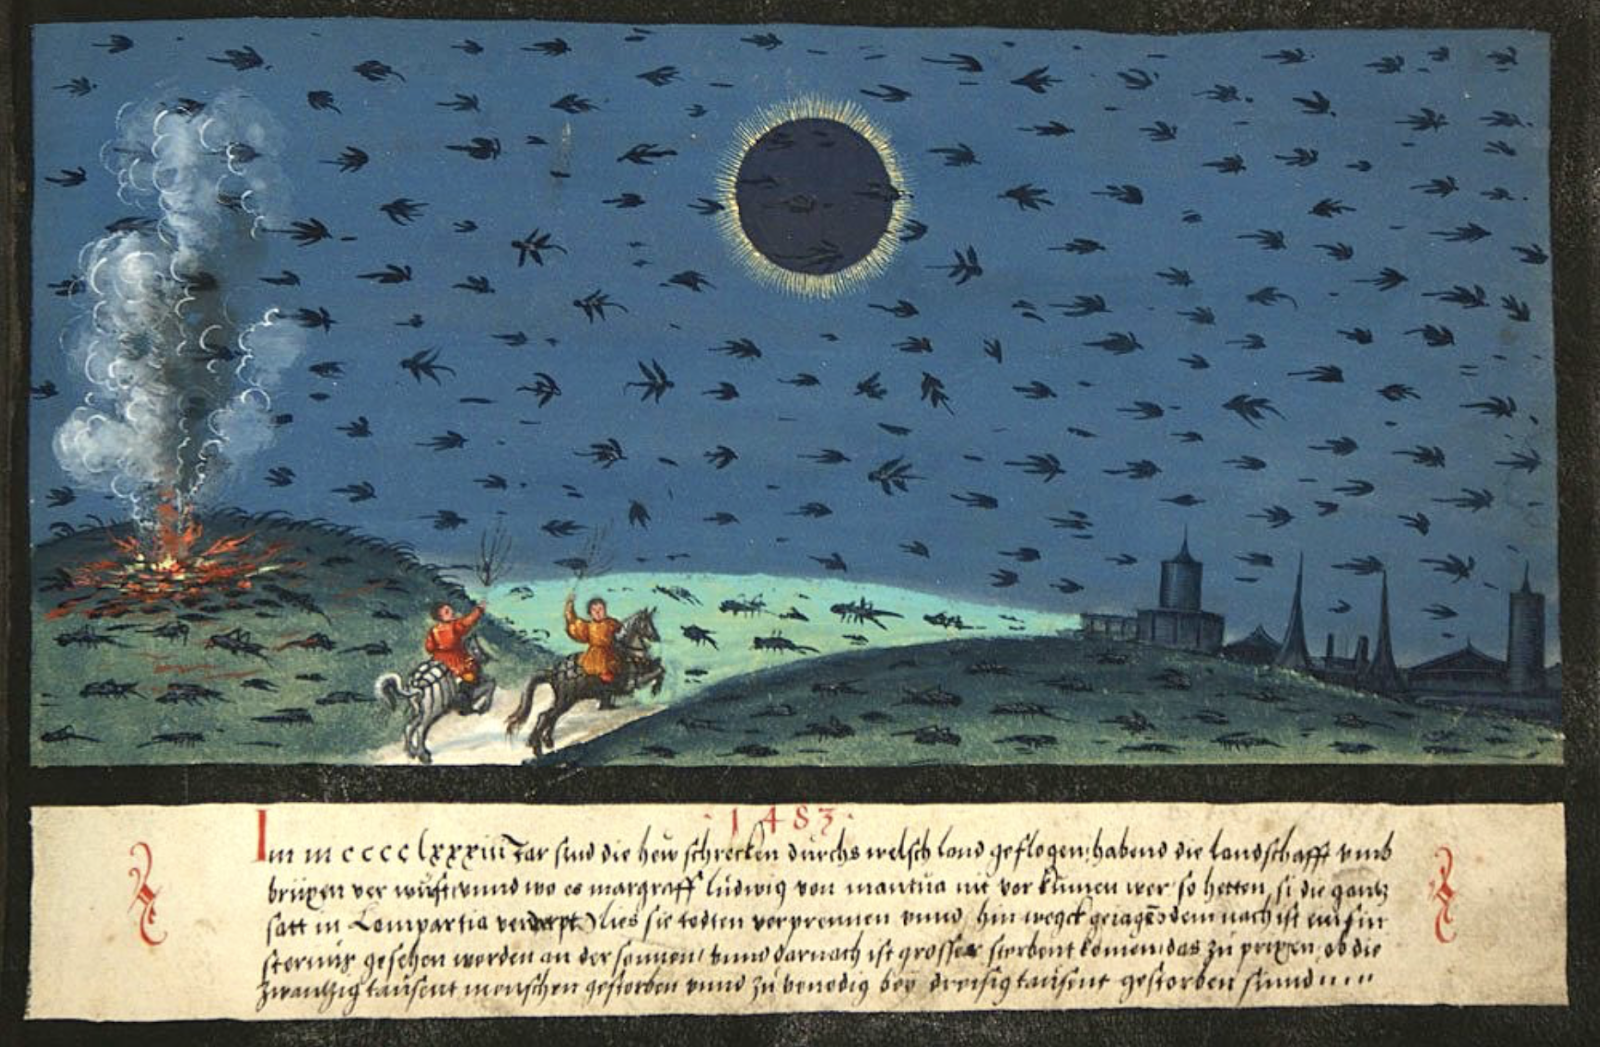 · 1483 ·
Im m cccc lxxxiii Jar sind die hew schrecken durchs welsch land geflogen habend die landschafft vmb
brixen ver wüst vnnd wo es margraff ludwig von mantua nit vor kumen wer so hetten si die gantz
satt in Lompartia verderpt lies sie todten verprennen vnnd hin weg geiagt dem nach ist ein fin
sternüs gesehen worden an der sonnen vnnd darnach ist grosser sterbent komen das zu prixen ob die
zwantzig tausent menschen gestorben vnnd zu venedig bey dreisig tausent gestorben sinnd